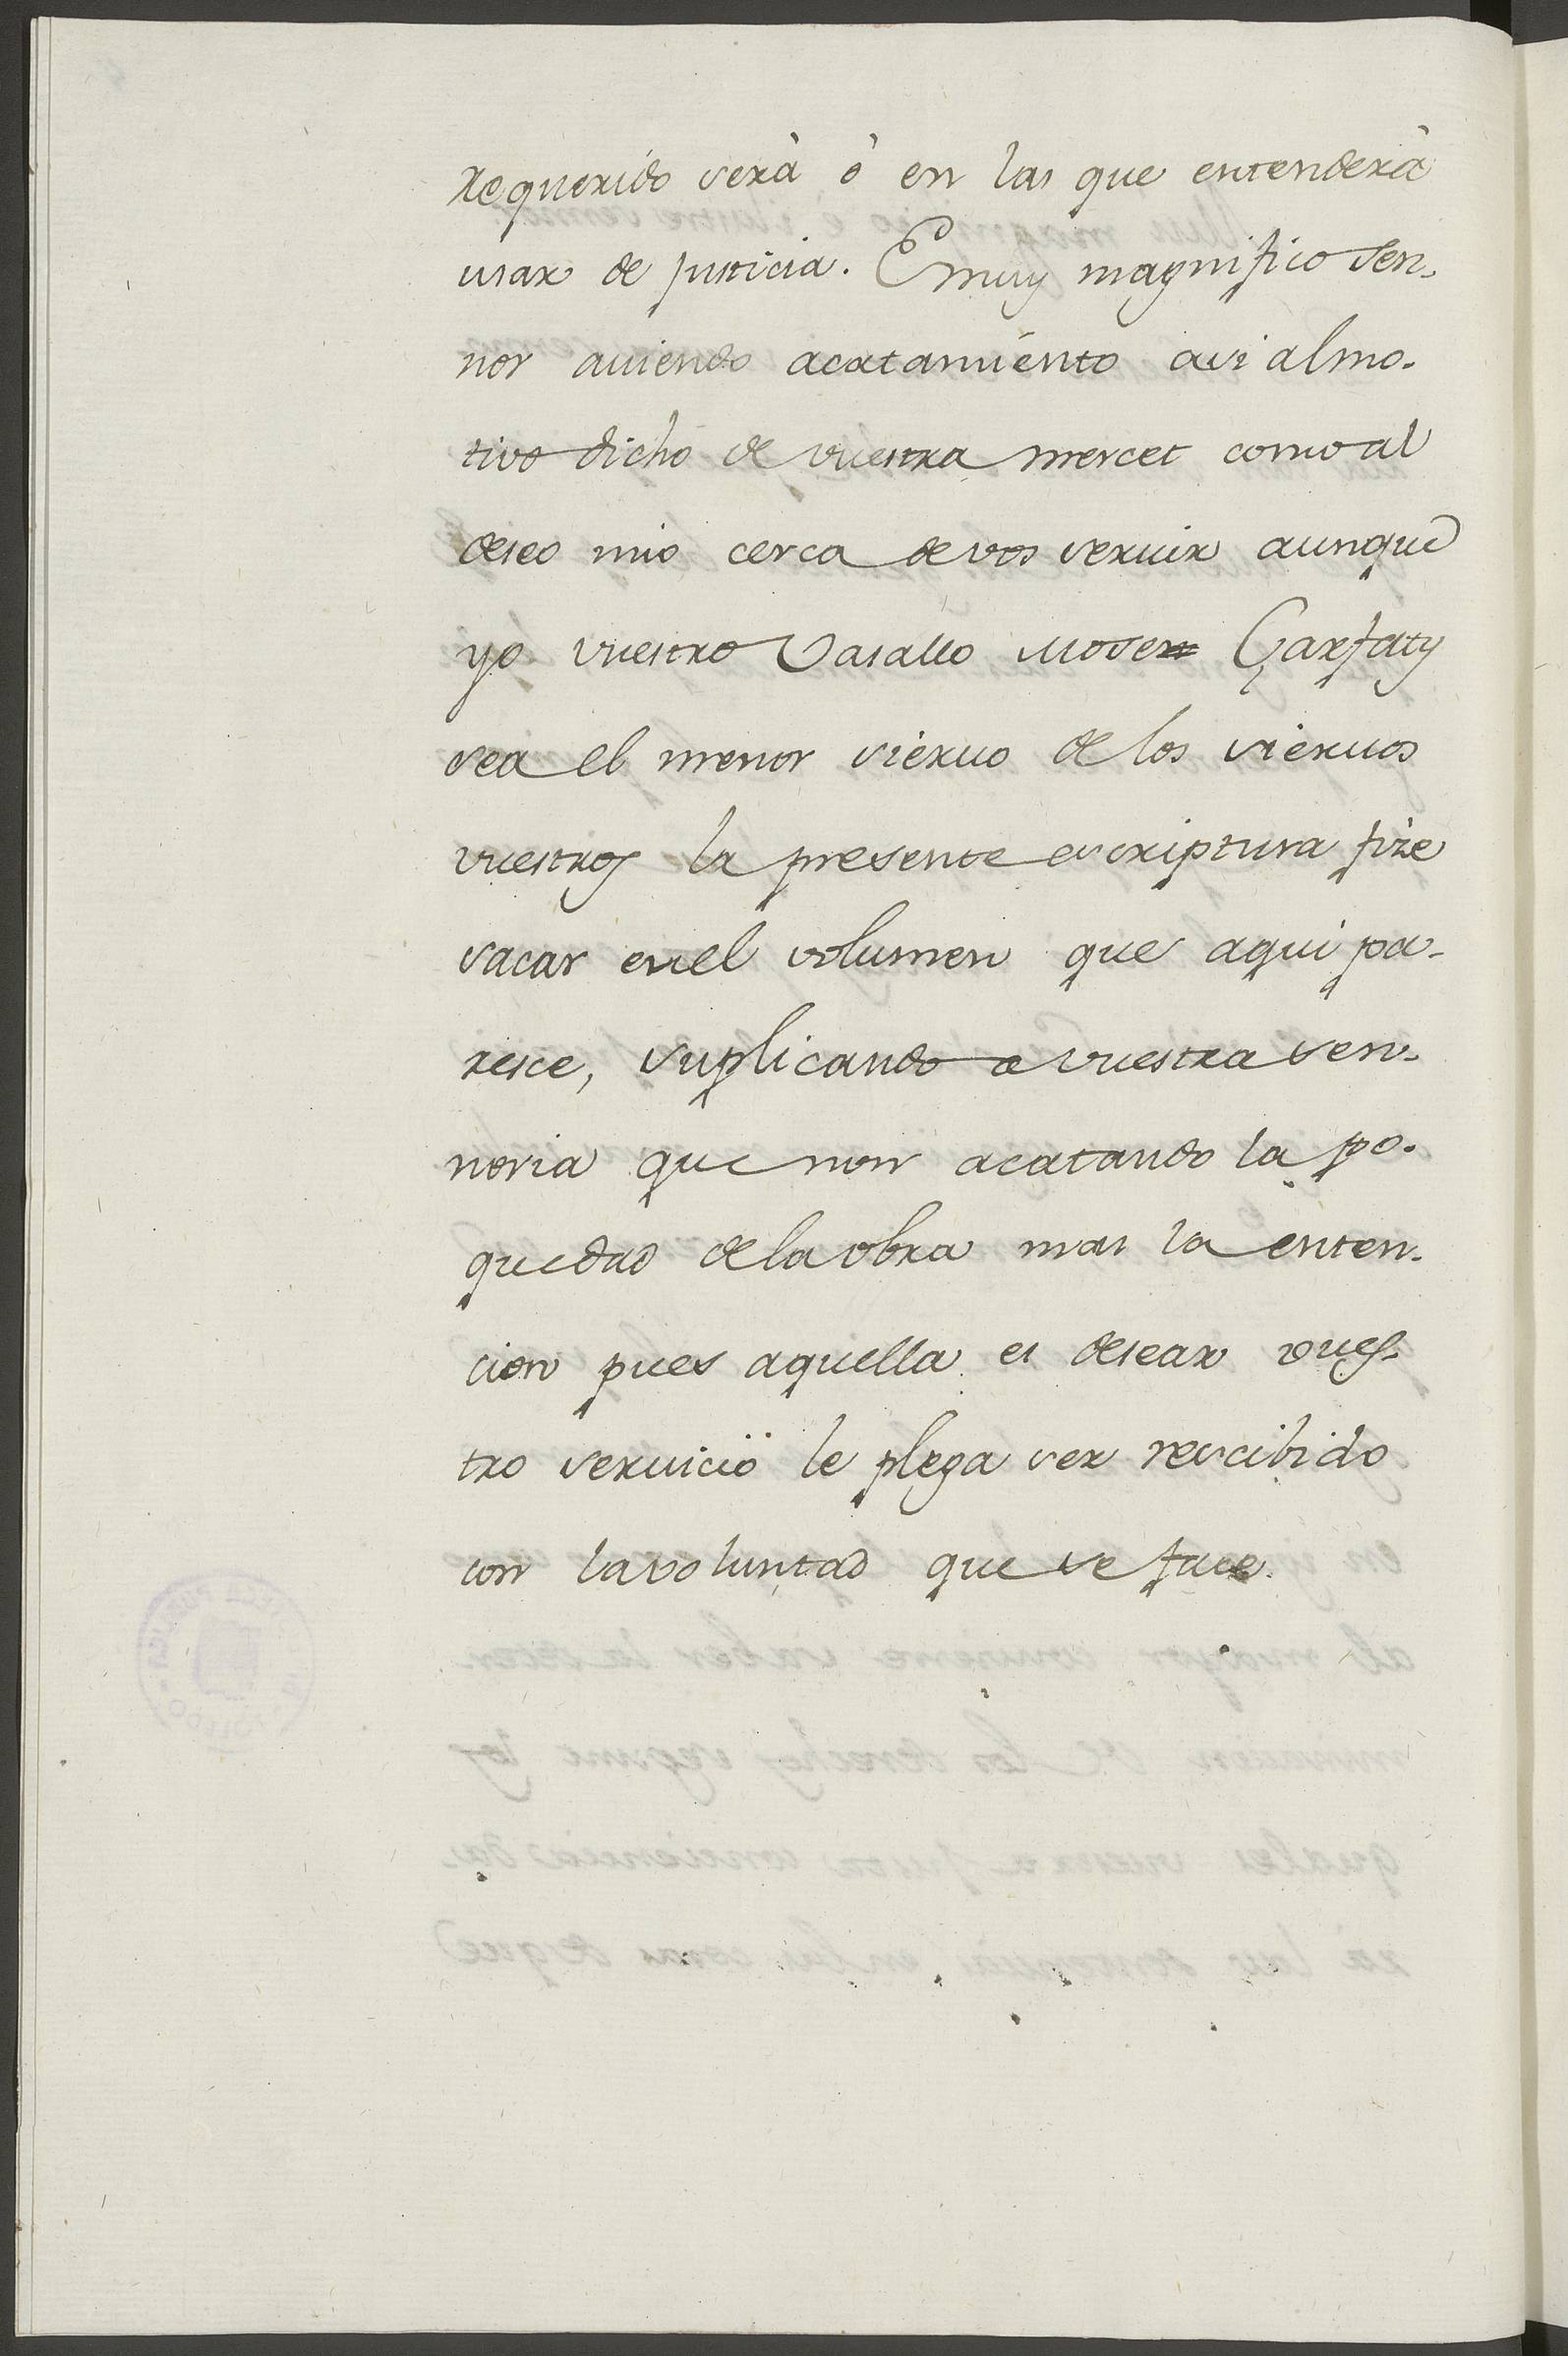 requerido será ó en las que entenderá
usar de justicia. E muy magnifico sen-
nor auiendo acatamiento asi almo-
tivo dicho de vuestra mercet como al
deseo mio cerca de vos seruir aunque
yo vuestro Vasallo Mosen Çarfaty
sea el menor sieruo de los sieruos
vuestros la presente escriptura fize
sacar en el volumen que aqui pa-
resce, suplicando a vuestra sen-
noria que non acatando la po-
quedad de la obra mas la enten-
cion pues aquella es desear vues-
tro seruicio le plega ser rescibido
con la voluntad que se face.